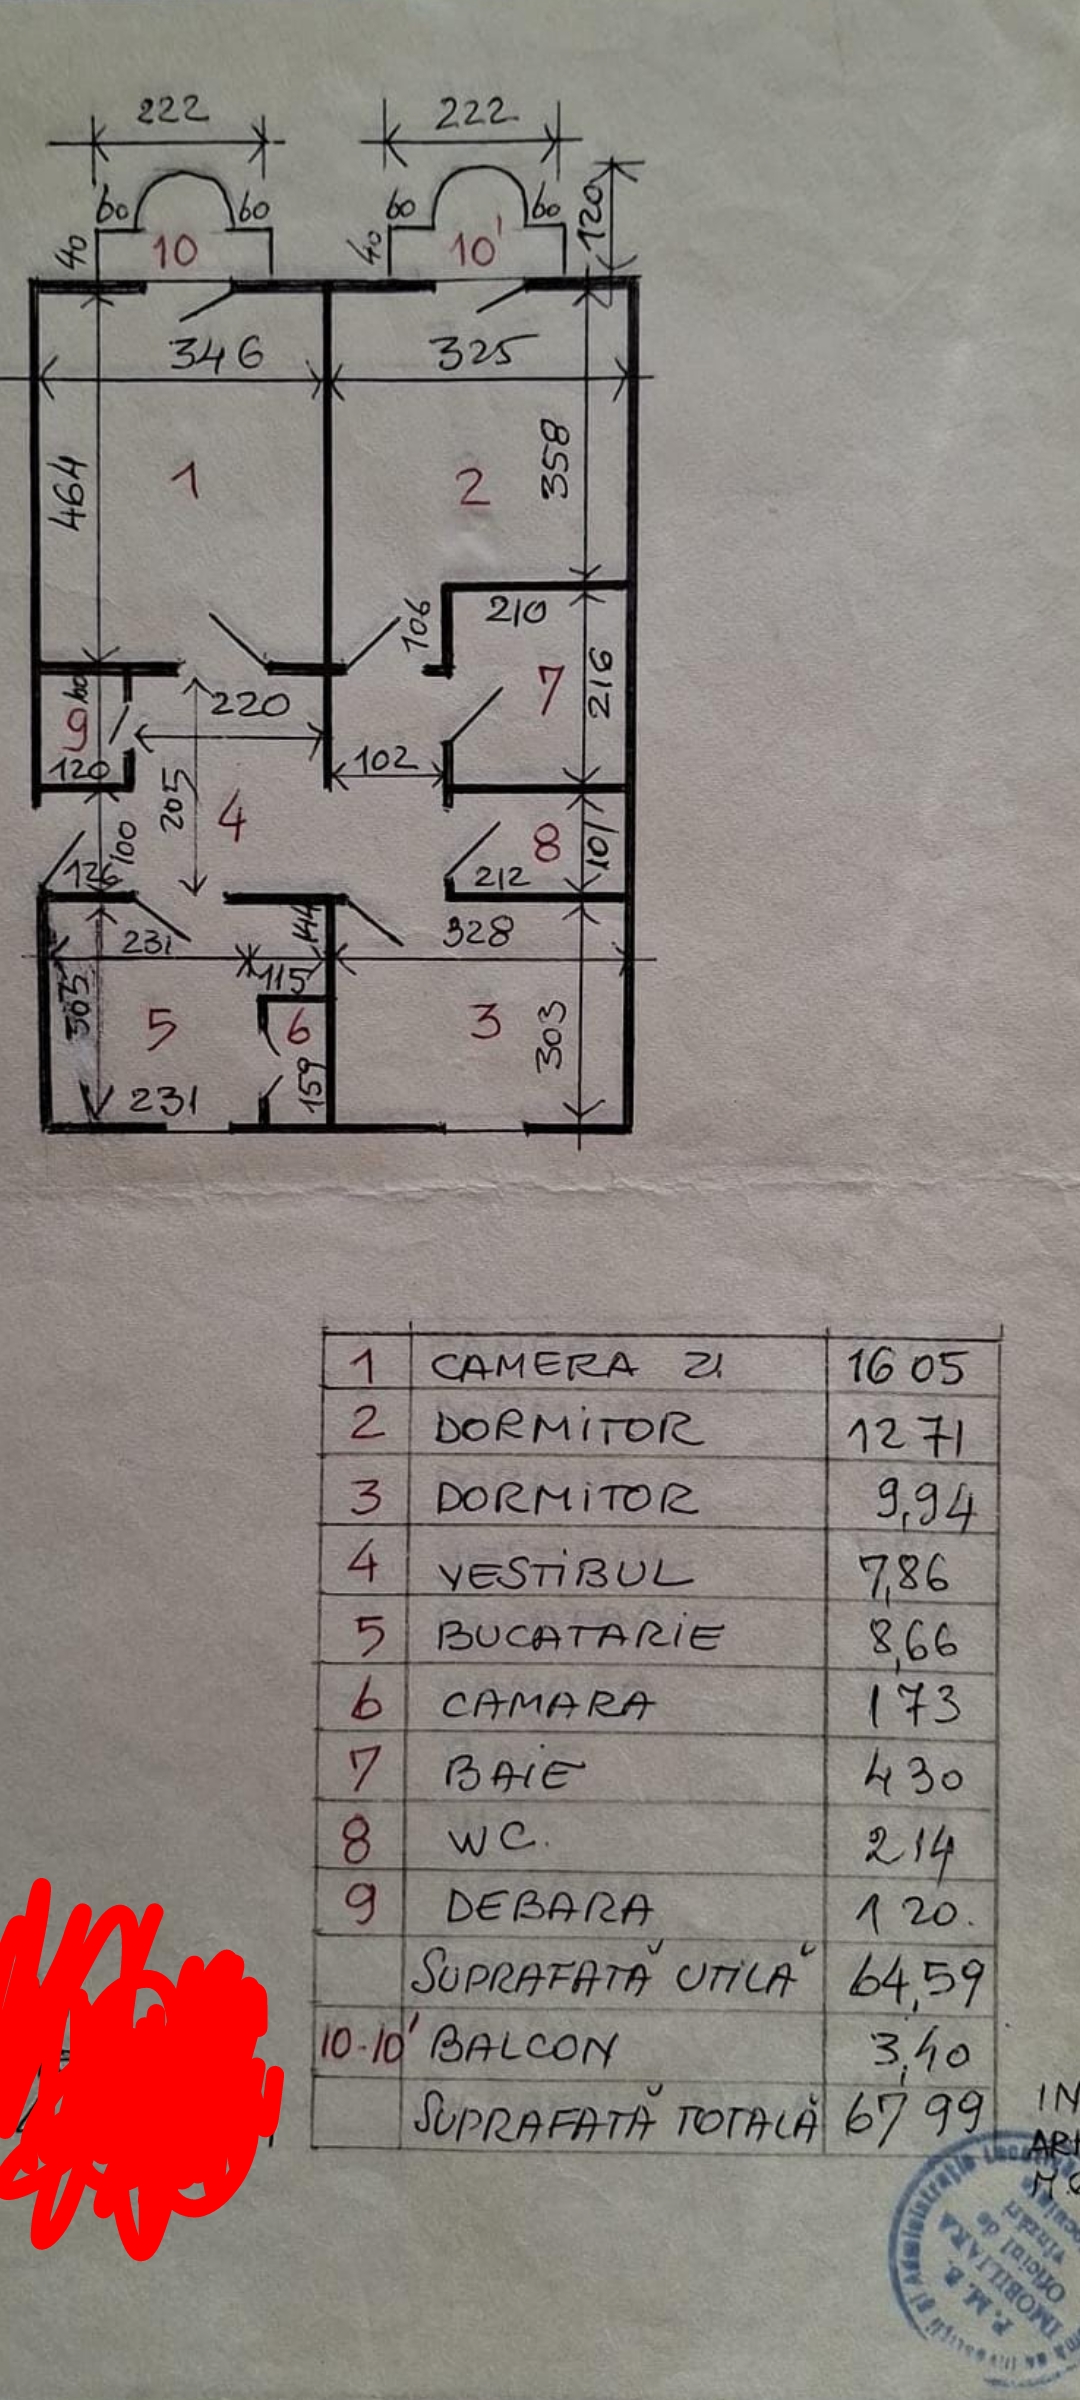 222 222
60 60 60 60 120
40 10 40 10'
346 325
464 1 2 358
106 210
9 60 220 7 216
120 102
205 4
126 100 8 101
212
231 144 328
115
305 5 6 3 303
231 159
1 CAMERA ZI 16 05
2 DORMITOR 12 71
3 DORMITOR 9,94
4 VESTIBUL 7,86
5 BUCATARIE 8,66
6 CAMARA 1 73
7 BAIE 4 30
8 WC. 2 14
9 DEBARA 1 20.
SUPRAFATĂ UTILĂ 64,59
10-10' BALCON 3,40
SUPRAFATĂ TOTALĂ 67 99
IN
ARH
P. M. B.
IMOBILIARA
Oficial de
vînzări
Administrație